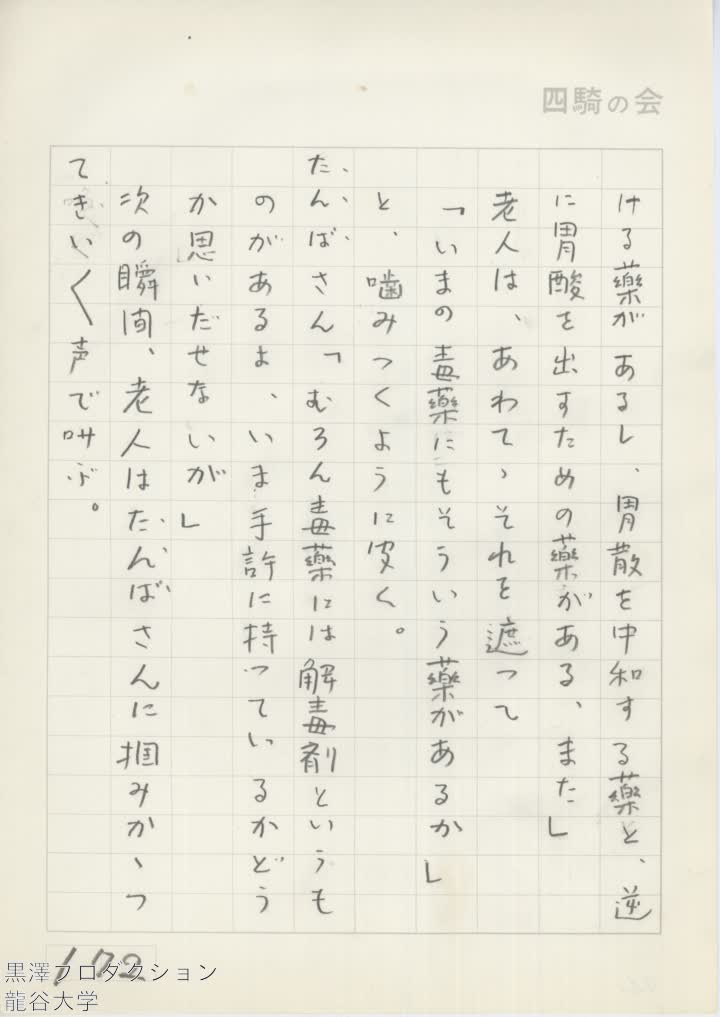 四騎の会
ける藥があるし、胃散を中和する藥と、逆
に胃酸を出すための藥がある、また」
老人は、あわてゝそれを遮って
「いまの毒藥にもそういう藥があるか」
と、噛みつくように皮く。
たんばさん「むろん毒藥には解毒剤というも
のがあるよ、いま手許に持っているかどう
か思いだせないが」
次の瞬間、老人はたんばさんに掴みかゝっ
てきいく声で叫ぶ。
172
黒澤プロダクション
龍谷大学